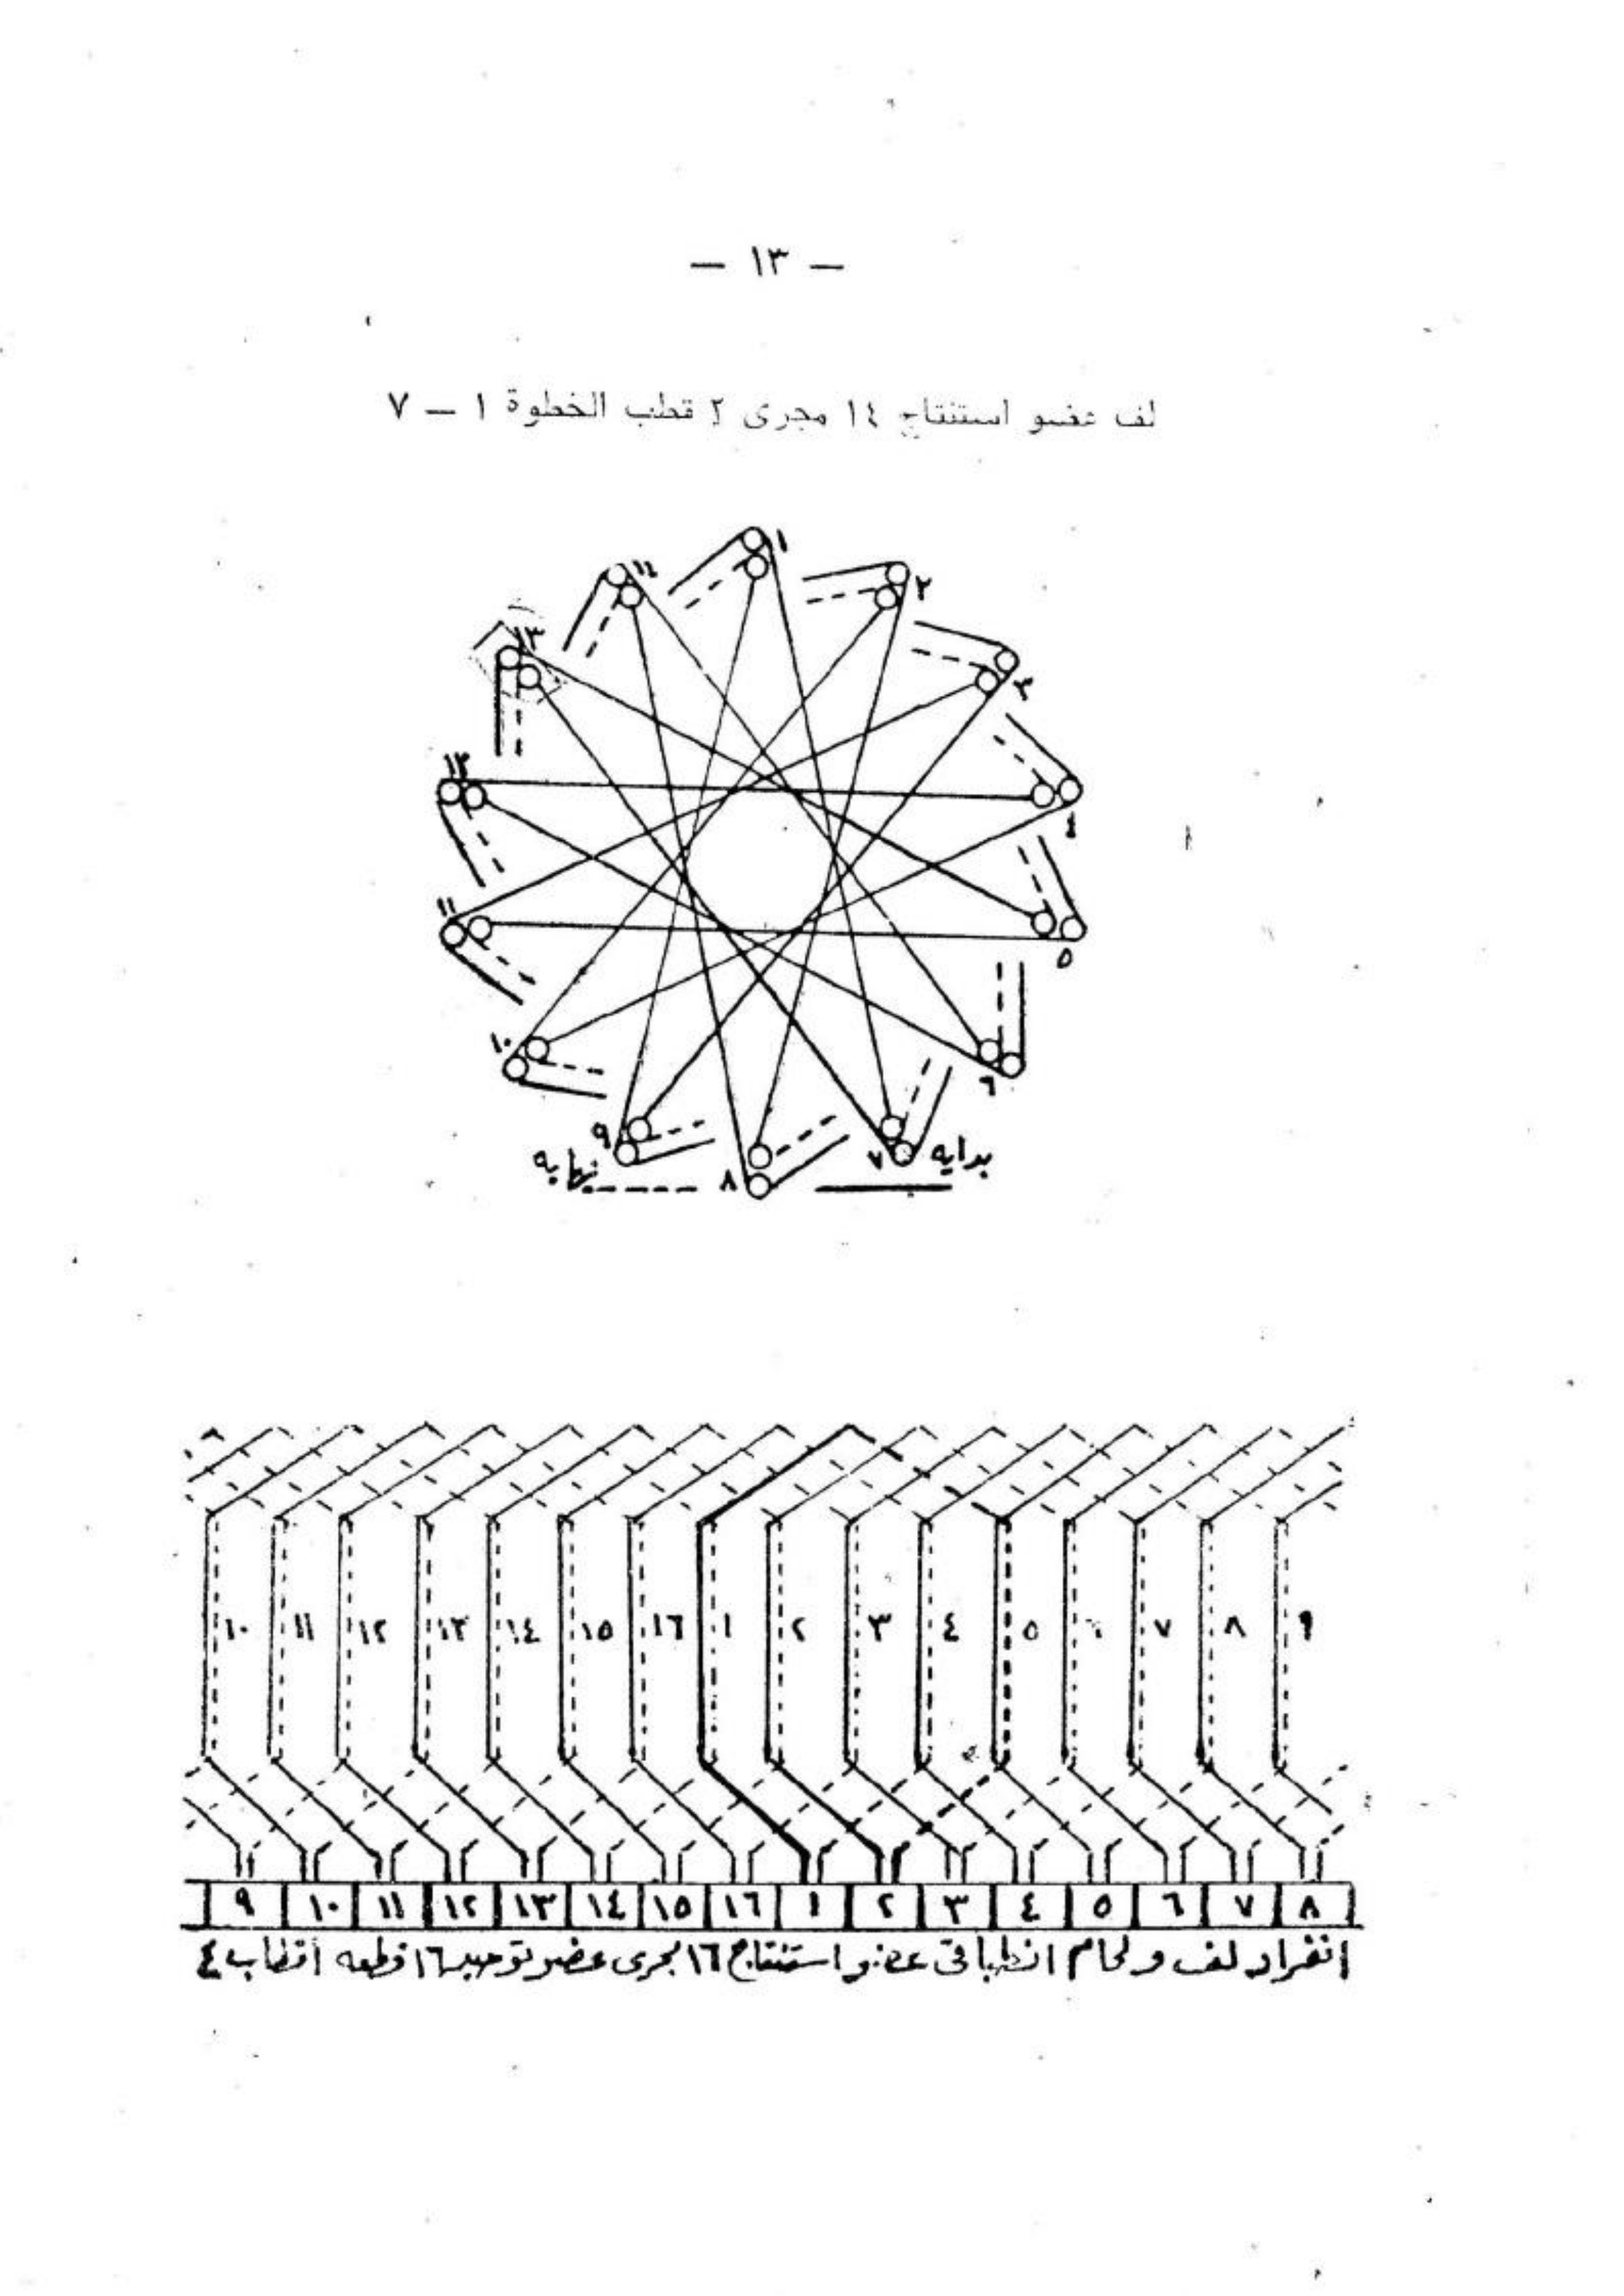 — ١٣ —
لف عضو استنتاج ١٤ مجرى ٢ قطب الخطوة ١ — ٧
١
١٤
٢
١٣
٣
١٢
٤
١١
٥
١٠
٦
٩
٧ بدايه
نهايه
٨
١٠ ١١ ١٢ ١٣ ١٤ ١٥ ١٦ ١ ٢ ٣ ٤ ٥ ٦ ٧ ٨ ٩
٩ ١٠ ١١ ١٢ ١٣ ١٤ ١٥ ١٦ ١ ٢ ٣ ٤ ٥ ٦ ٧ ٨
انفراد لف ولحام انطباقى عضو استنتاج ١٦ مجرى عضو توحيد ١٦ قطعه أقطاب ٤